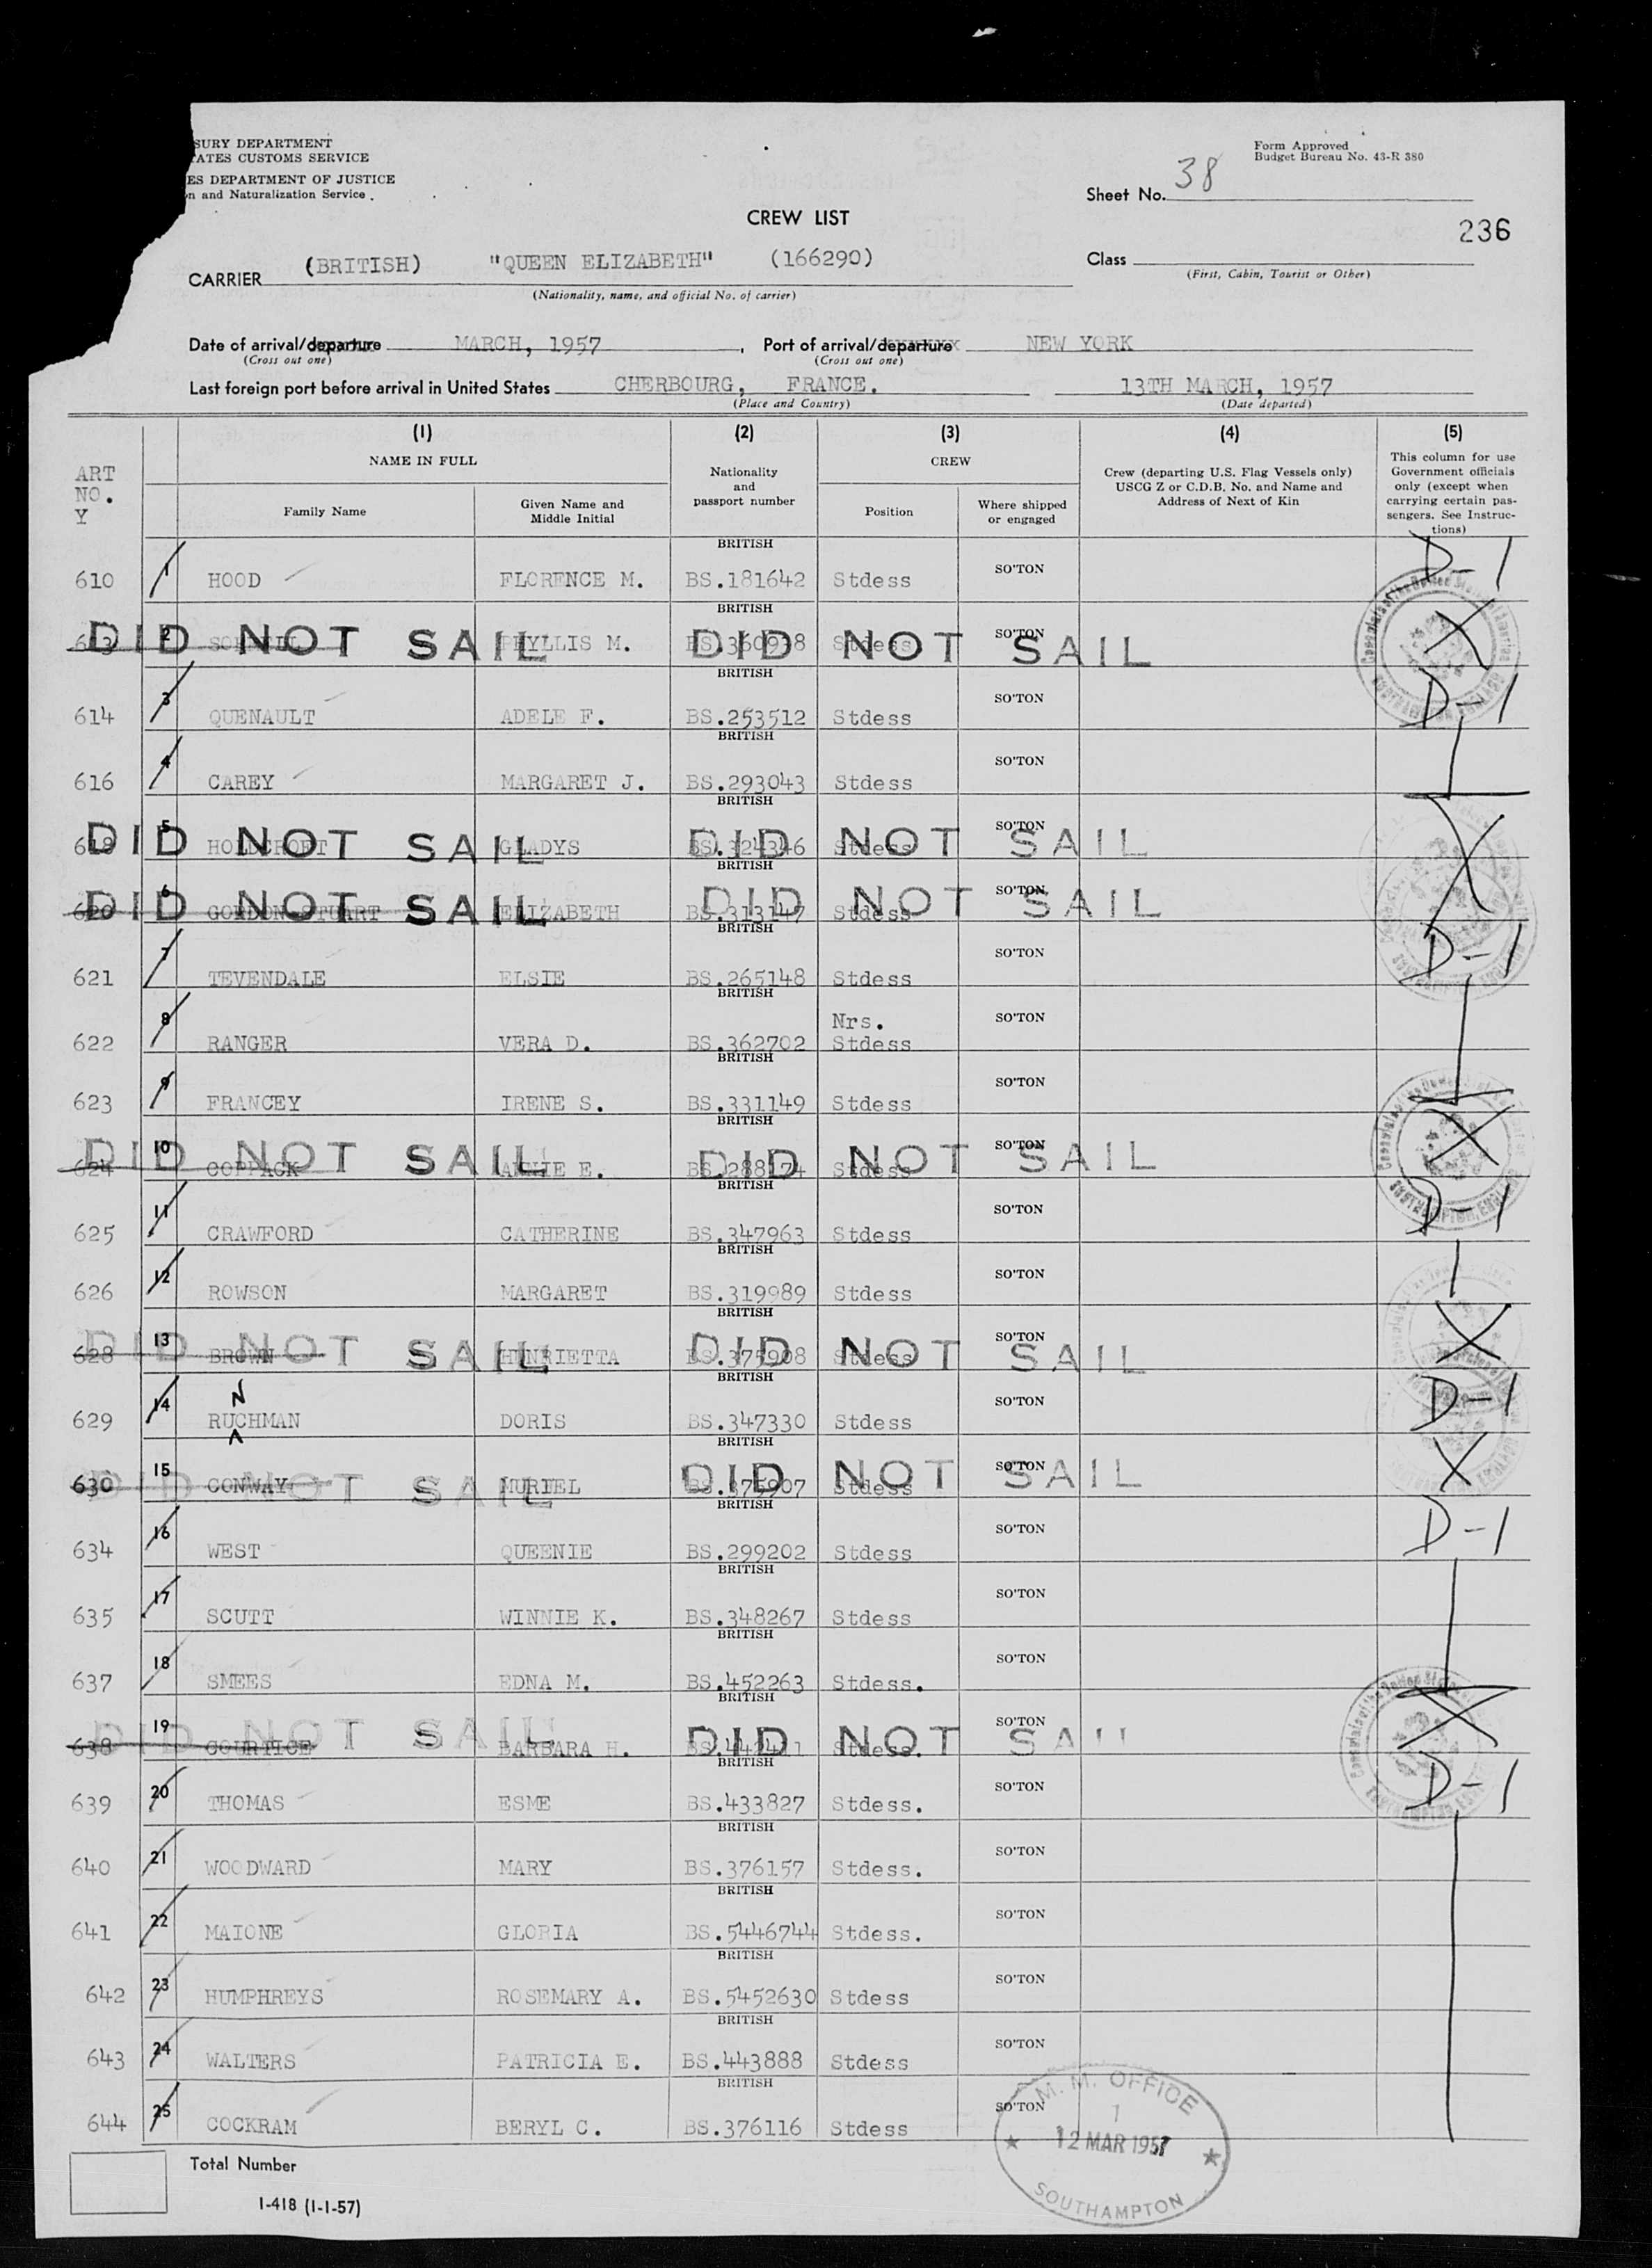 SURY DEPARTMENT
ATES CUSTOMS SERVICE
ES DEPARTMENT OF JUSTICE
n and Naturalization Service
Form Approved
Budget Bureau No. 43-R 380
Sheet No. 38
CREW LIST
236
CARRIER (BRITISH) "QUEEN ELIZABETH" (166290)
(Nationality, name, and official No. of carrier)
Class
(First, Cabin, Tourist or Other)
Date of arrival/departure MARCH, 1957, Port of arrival/departure NEW YORK
(Cross out one) (Cross out one)
Last foreign port before arrival in United States CHERBOURG, FRANCE. 13TH MARCH, 1957
(Place and Country) (Date departed)
(1) (2) (3) (4) (5)
ART NO. Y
NAME IN FULL
Family Name
Given Name and Middle Initial
Nationality and passport number
CREW
Position
Where shipped or engaged
Crew (departing U.S. Flag Vessels only) USCG Z or C.D.B. No. and Name and Address of Next of Kin
This column for use Government officials only (except when carrying certain passengers. See Instructions)
610 1 HOOD FLORENCE M. BRITISH BS.181642 Stdess SO'TON D-1
2 PHYLLIS M. BRITISH Stdess SO'TON X
DID NOT SAIL DID NOT SAIL
614 3 QUENAULT ADELE F. BRITISH BS.253512 Stdess SO'TON D-1
616 4 CAREY MARGARET J. BRITISH BS.293043 Stdess SO'TON
5 GLADYS BRITISH BS.324346 Stdess SO'TON X
DID NOT SAIL DID NOT SAIL
620 6 GORDON STUART ELIZABETH BRITISH BS.313147 Stdess SO'TON
DID NOT SAIL DID NOT SAIL
621 7 TEVENDALE ELSIE BRITISH BS.265148 Stdess SO'TON D-1
622 8 RANGER VERA D. BRITISH BS.362702 Nrs. Stdess SO'TON
623 9 FRANCEY IRENE S. BRITISH BS.331149 Stdess SO'TON
624 10 COPPACK ANNIE E. BRITISH Stdess SO'TON X
DID NOT SAIL DID NOT SAIL
625 11 CRAWFORD CATHERINE BRITISH BS.347963 Stdess SO'TON D-1
626 12 ROWSON MARGARET BRITISH BS.319989 Stdess SO'TON
628 13 BROWN HENRIETTA BRITISH BS.375908 Stdess SO'TON X
DID NOT SAIL DID NOT SAIL
629 14 RUCHMAN N DORIS BRITISH BS.347330 Stdess SO'TON D-1
630 15 CONWAY MURIEL BRITISH BS.375907 Stdess SO'TON X
DID NOT SAIL DID NOT SAIL
634 16 WEST QUEENIE BRITISH BS.299202 Stdess SO'TON D-1
635 17 SCUTT WINNIE K. BRITISH BS.348267 Stdess SO'TON
637 18 SMEES EDNA M. BRITISH BS.452263 Stdess. SO'TON
638 19 COURTICE BARBARA H. BRITISH Stdess. SO'TON X
DID NOT SAIL DID NOT SAIL
639 20 THOMAS ESME BRITISH BS.433827 Stdess. SO'TON D-1
640 21 WOODWARD MARY BRITISH BS.376157 Stdess. SO'TON
641 22 MAIONE GLORIA BRITISH BS.5446744 Stdess. SO'TON
642 23 HUMPHREYS ROSEMARY A. BRITISH BS.5452630 Stdess SO'TON
643 24 WALTERS PATRICIA E. BRITISH BS.443888 Stdess SO'TON
644 25 COCKRAM BERYL C. BRITISH BS.376116 Stdess SO'TON
M. M. OFFICE
1
12 MAR 1957
SOUTHAMPTON
Total Number
I-418 (1-1-57)